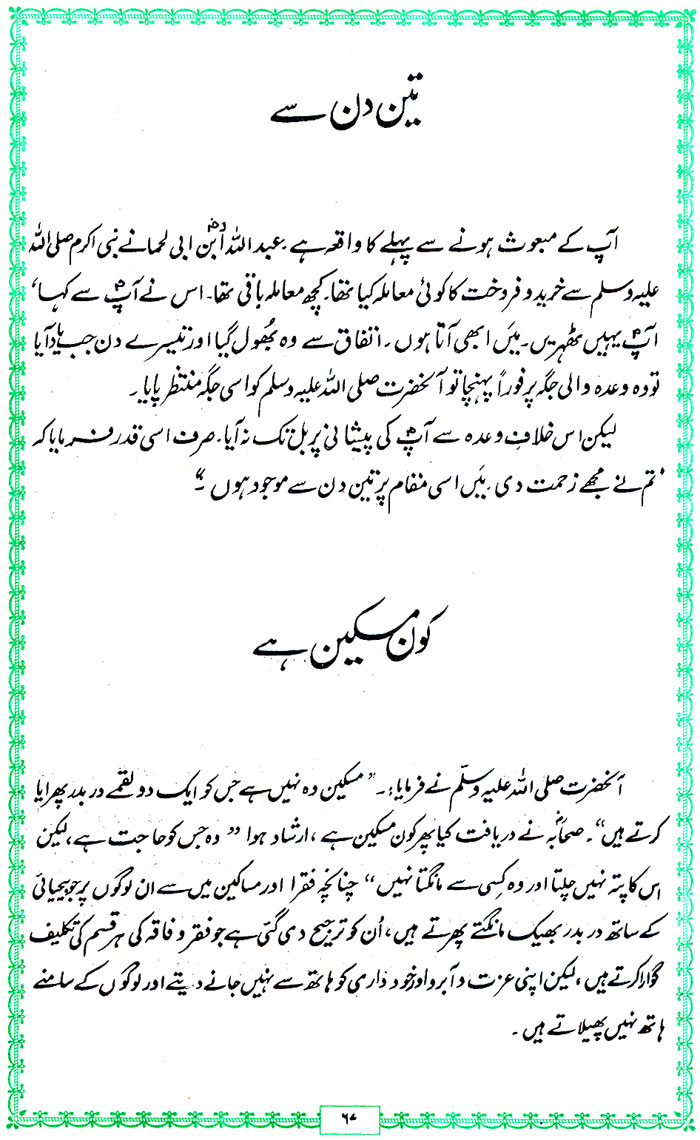 تین دن سے
آپ کے مبعوث ہونے سے پہلے کا واقعہ ہے۔ عبداللہ ابن ابی لحمانے نبی اکرم صلی اللہ
علیہ وسلم سے خرید و فروخت کا کوئی معاملہ کیا تھا۔ کچھ معاملہ باقی تھا۔ اس نے آپؐ سے کہا،
آپؐ یہیں ٹھہریں۔ میَں ابھی آتا ہوں۔ اتفاق سے وہ بھُول گیا اور تیسرے دن جب یاد آیا
تو وہ وعدہ والی جگہ پر فوراً پہنچا تو آنحضرت صلی اللہ علیہ وسلم کو اسی جگہ منتظر پایا۔
لیکن اس خلافِ وعدہ سے آپؐ کی پیشانی پر بل تک نہ آیا۔ صرف اسی قدر فرمایا کہ
"تم نے مجھے زحمت دی۔ میَں اسی مقام پر تین دن سے موجود ہوں۔"
کون مسکین ہے
آنحضرت صلی اللہ علیہ وسلّم نے فرمایا:۔ "مسکین وہ نہیں ہے جس کو ایک دو لقمے در بدر پھرایا
کرتے ہیں"۔ صحابہؓ نے دریافت کیا پھر کون مسکین ہے، ارشاد ہوا "وہ جس کو حاجت ہے، لیکن
اس کا پتہ نہیں چلتا اور وہ کِسی سے مانگتا نہیں" چنانچہ فقرا اور مساکین میں سے ان لوگوں پر جو بیحیائی
کے ساتھ در بدر بھیک مانگتے پھرتے ہیں، اُن کو ترجیح دی گئی ہے جو فقر و فاقہ کی ہر قسم کی تکلیف
گوارا کرتے ہیں، لیکن اپنی عزت و آبرو اور خود داری کو ہاتھ سے نہیں جانے دیتے اور لوگوں کے سامنے
ہاتھ نہیں پھیلاتے ہیں۔
۶۷